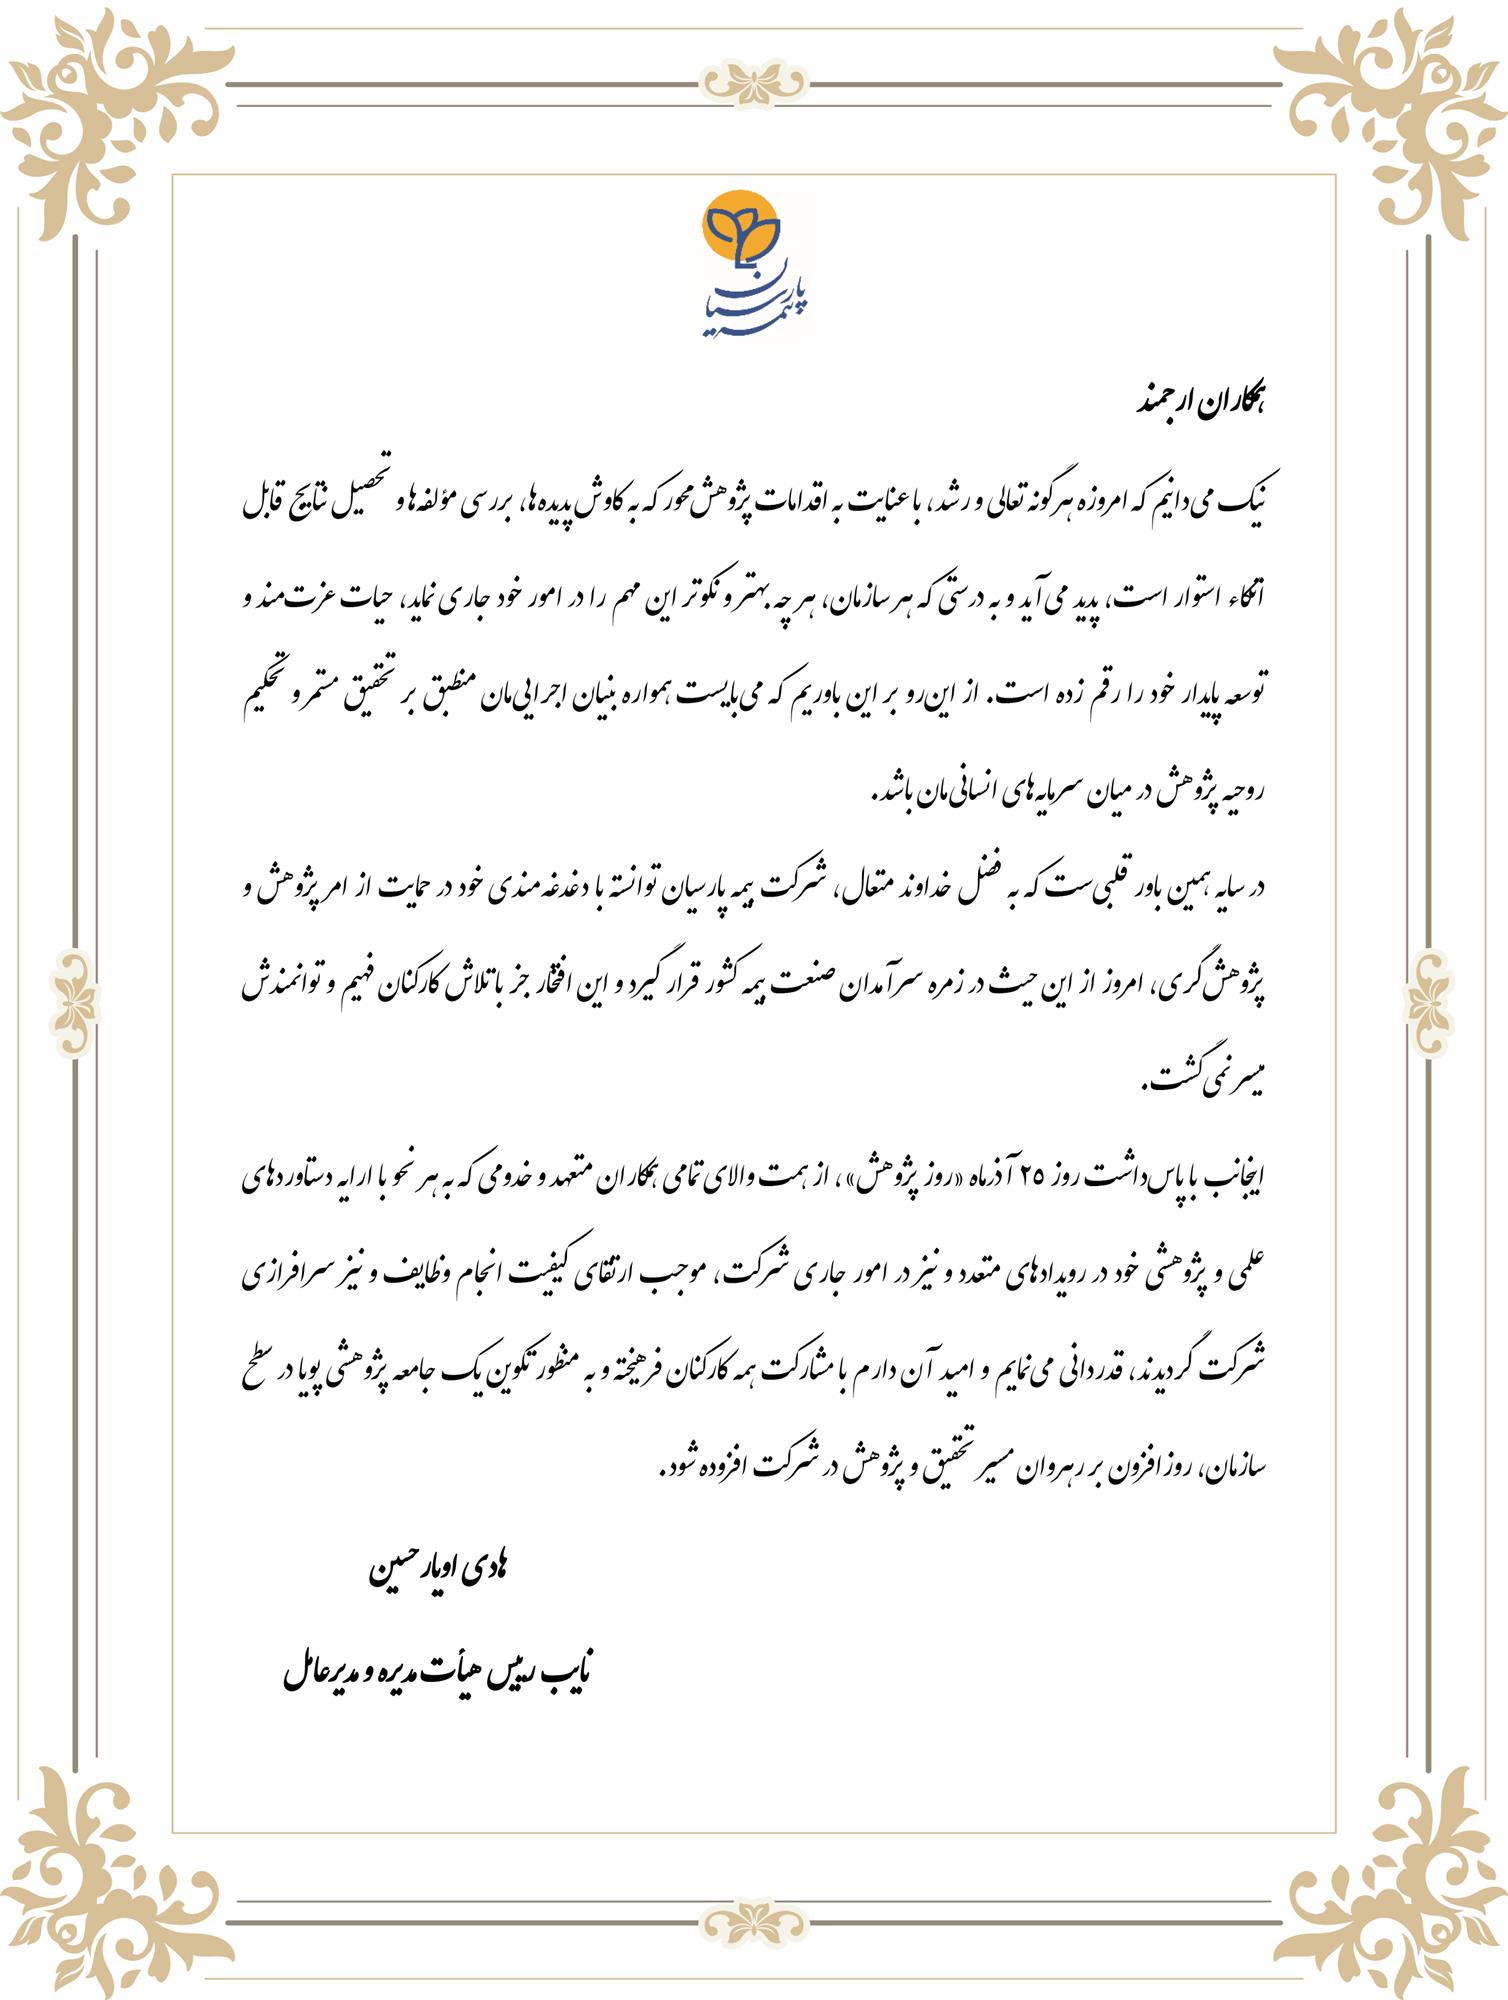 بیمه پارسیان
همکاران ارجمند
نیک می‌دانیم که امروزه هرگونه تعالی و رشد، با عنایت به اقدامات پژوهش‌محور که به کاوش پدیده‌ها، بررسی مؤلفه‌ها و تحصیل نتایج قابل
اتکاء استوار است، پدید می‌آید و به درستی که هر سازمان، هر چه بهتر و نکوتر این مهم را در امور خود جاری نماید، حیات عزت‌مند و
توسعه پایدار خود را رقم زده است. از این‌رو بر این باوریم که می‌بایست همواره بنیان اجرایی‌مان منطبق بر تحقیق مستمر و تحکیم
روحیه پژوهش در میان سرمایه‌های انسانی‌مان باشد.
در سایه همین باور قلبی‌ست که به فضل خداوند متعال، شرکت بیمه پارسیان توانسته با دغدغه‌مندی خود در حمایت از امر پژوهش و
پژوهش‌گری، امروز از این حیث در زمره سرآمدان صنعت بیمه کشور قرار گیرد و این افتخار جز با تلاش کارکنان فهیم و توانمندش
میسر نمی‌گشت.
اینجانب با پاس‌داشت روز ۲۵ آذرماه «روز پژوهش»، از همت والای تمامی همکاران متعهد و خدومی که به هر نحو با ارایه دستاوردهای
علمی و پژوهشی خود در رویدادهای متعدد و نیز در امور جاری شرکت، موجب ارتقای کیفیت انجام وظایف و نیز سرافرازی
شرکت گردیدند، قدردانی می‌نمایم و امید آن دارم با مشارکت همه کارکنان فرهیخته و به منظور تکوین یک جامعه پژوهشی پویا در سطح
سازمان، روزافزون بر رهروان مسیر تحقیق و پژوهش در شرکت افزوده شود.
هادی اویارحسین
نایب رییس هیأت مدیره و مدیرعامل